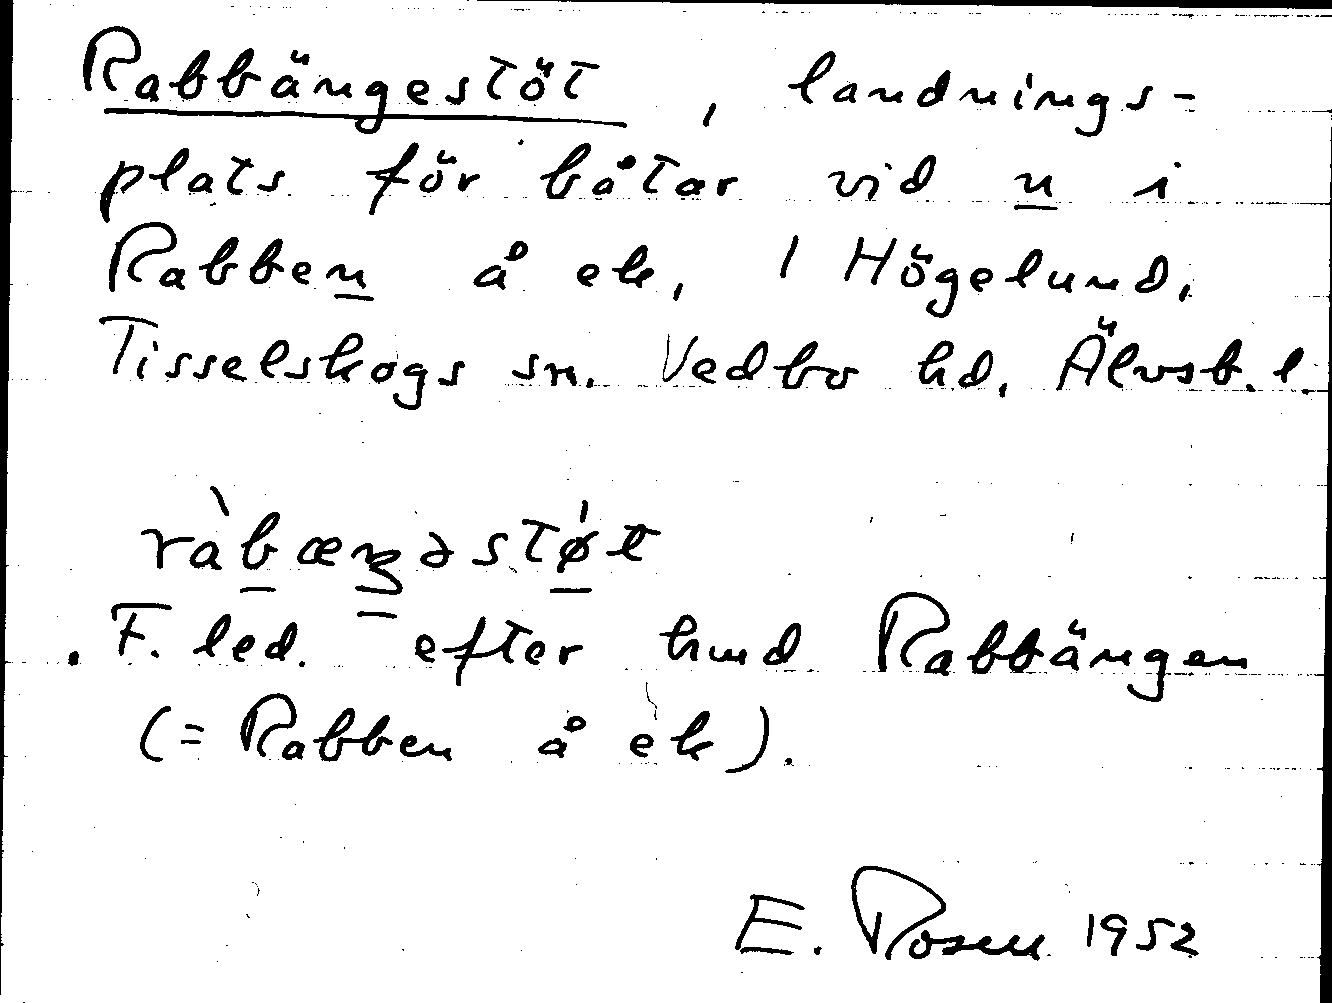 Rabbängestöt, landnings-
plats för båtar vid n i
Rabben å ek, 1 Högelund,
Tisselskogs sn. Vedbo hd, Älvsb. l.
ràbæŋəstǿt
F. led. efter hmd Rabbängen
(= Rabben å ek).
E. Rosen 1952